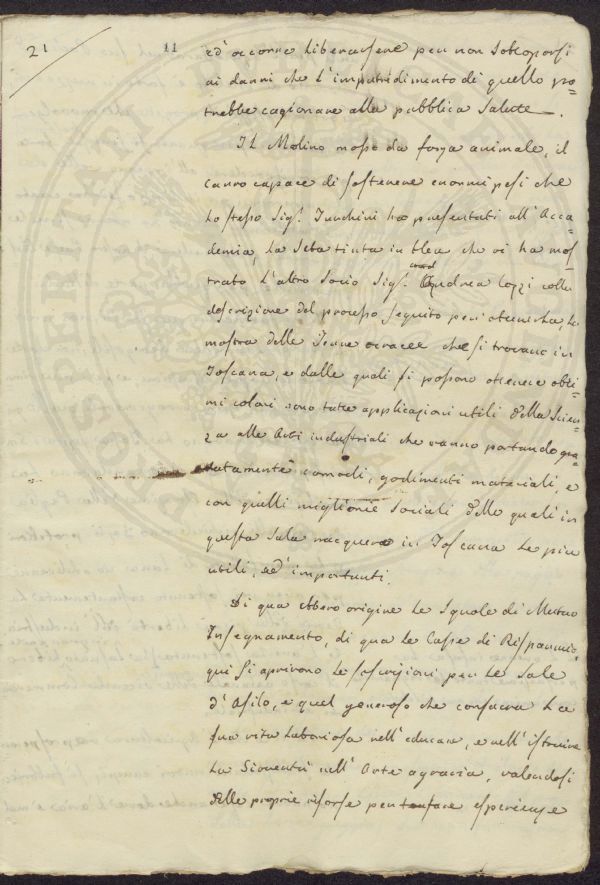 21
11
ed' occorre liberarsene per non sottoporsi
ai danni che l'imputridimento di quello po=
trebbe cagionare alla pubblica Salute.
Il Molino mosso da forza animale, il
carro capace di sostenere enormi pesi che
lo stesso Sigr. Turchini ha presentati all'Acca=
demia, la Seta tinta in bleu che vi ha mos=
trato l'altro Socio Sigr. Andrea Cozzi colla
descrizione del processo seguito per ottenerla, la
mostra delle Terre ocracee che si trovano in
Toscana, e dalle quali si possono ottenere otti=
mi colori sono tutte applicazioni utili della Scien=
za alle Arti industriali che vanno portando gra=
datamente comodi, godimenti materiali, e
con quelli migliorie Sociali delle quali in
questa Sala nacquero in Toscana le piu
utili, ed' importanti.
Di qua ebbero origine le Squole di Mutuo
Insegnamento, di qua le Casse di Risparmio,
qui si aprirono le soscrizioni per le Sale
d'Asilo, e quel generoso che consacra la
sua vita laboriosa nell'educare, e nell'istruire
la Gioventù nell'Arte agraria, valendosi
delle proprie risorse per tentare esperienze